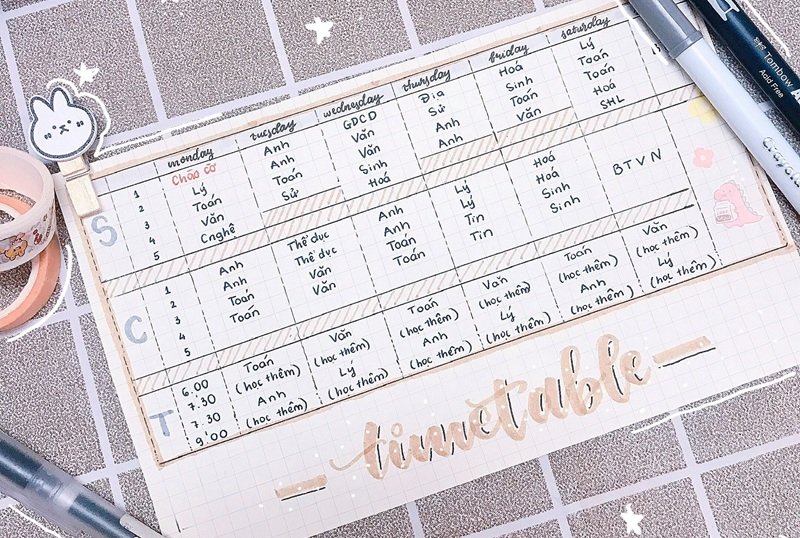 monday tuesday wednesday thursday friday saturday
S
1 Chào cờ Anh GDCD Địa Hoá Lý
2 Lý Anh Văn Sử Sinh Toán
3 Toán Toán Văn Anh Toán Toán
4 Văn Sử Sinh Anh Văn Hoá
5 Cnghệ Hoá SHL
C
1 Anh Thể dục Anh Lý Hoá BTVN
2 Anh Thể dục Anh Lý Hoá
3 Toán Văn Toán Tin Sinh
4 Toán Văn Toán Tin Sinh
5
T
6.00 Toán Văn Toán Văn Toán Văn
7.30 (học thêm) (học thêm) (học thêm) (học thêm) (học thêm) (học thêm)
7.30 Anh Lý Anh Lý Anh Lý
9.00 (học thêm) (học thêm) (học thêm) (học thêm) (học thêm) (học thêm)
timetable
Tombow
Acid Free